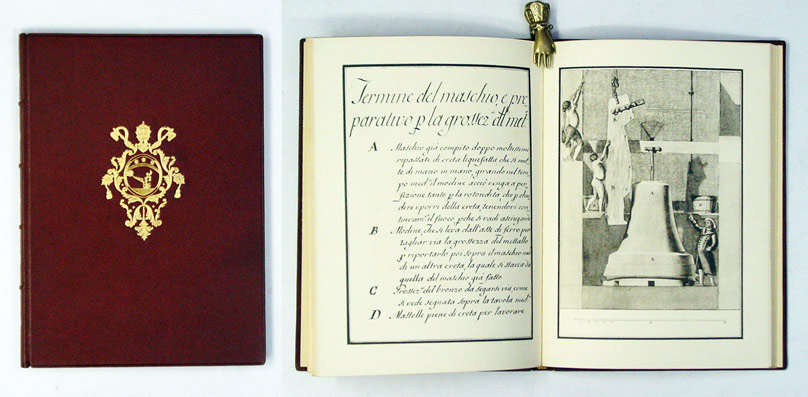 Termine del maschio, e pre
parativo p la grossez.ª dl met.º
A Maschio già compito doppo moltissime
ripassate di creta liquefatta che si met
te di mano in mano, girando nel tem
po med.º il modine acciò venga a per
fizione tanto p la rotondità, che p chiu
dere i porri della creta, tenendovi con
tinuam.e il fuoco, p che si vadi asciugando
B Modine, che si leva dall'asse di ferro per
tagliar via la grossezza del mettallo
p riportarlo poi sopra il maschio me
di un altra creta, la quale si stacca da
quella del maschio già fatto
C Grossez.ª del bronzo da segarsi via, come
si vede segnata sopra la tavola med.ª
D Mastelle piene di creta per lavorare
A